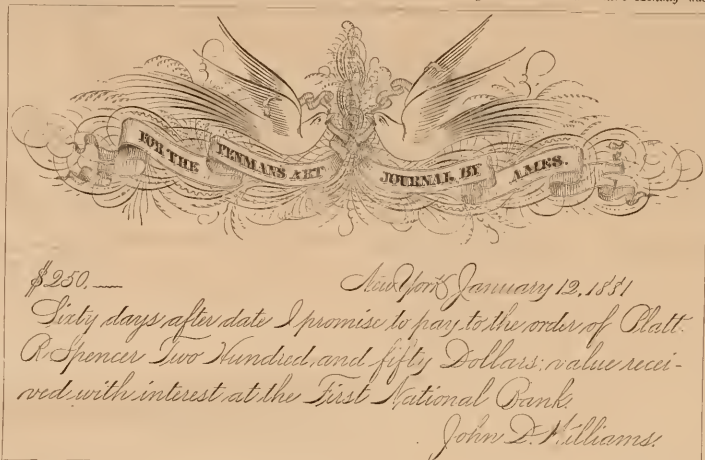 FOR THE PENMANS ART JOURNAL BY AMES.
$250.— New York January 12, 1881
Sixty days after date I promise to pay to the order of Platt
R Spencer Two Hundred, and fifty Dollars: value recei-
ved with interest at the First National Bank.
John D. Williams.